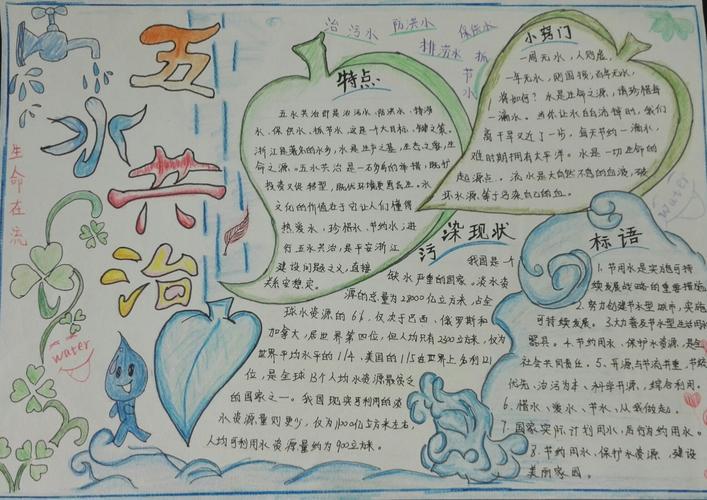 五水共治
治污水
防洪水
排涝水
保供水
抓节水
生命在流
water
特点:
五水共治即是治污水、防洪水、排涝
水、保供水、抓节水,这是一个大目标,
浙江是著名的水乡,水是生产之基,生态之要,生
命之源。五水共治是一石多鸟的举措,既扩
投资又促转型,既优环境更惠民生。水
文化的价值在于它让人们懂得
热爱水,珍惜水,节约水;进
行五水共治,是平安浙江
建设问题之义,直接
关系安稳定。
小窍门
一周无水,人则虑,
一年无水,则国损,百年无水,
将如何?水是生命之源,请珍惜每
一滴水。当你让水白白流掉时,我们
离干旱又近了一步,每天节约一滴水,
难时期拥有太平洋。水是一切生命的
起源点。流水是大自然不息的血液,破
坏水源,等于污染自己的血。
water
污染现状
我国是一个
缺水严重的国家。淡水资
源的总量为28000亿立方米,占全
球水资源的6%,仅次于巴西、俄罗斯和
加拿大,居世界第四位,但人均只有2300立方米,仅为
世界平均水平的1/4、美国的1/5,在世界上名列121
位,是全球13个人均水资源最贫乏
的国家之一。我国现实可利用的淡
水资源量则更少,仅为11000亿立方米左右,
人均可利用水资源量约为900立方米。
标语
1.节用水是实施可持
续发展战略的重要措施
2.努力创建节水型城市,实施
可持续发展。3.大力普及节水型生活用水
器具。4.节约用水、保护水资源,是全
社会共同责任。5.开源与节流并重,节流
优先、治污为本、科学开源、综合利用。
6.惜水、爱水、节水,从我做起。
7.国家实际计划用水,厉行节约用水。
8.节约用水,保护水资源,建设
美丽家园。